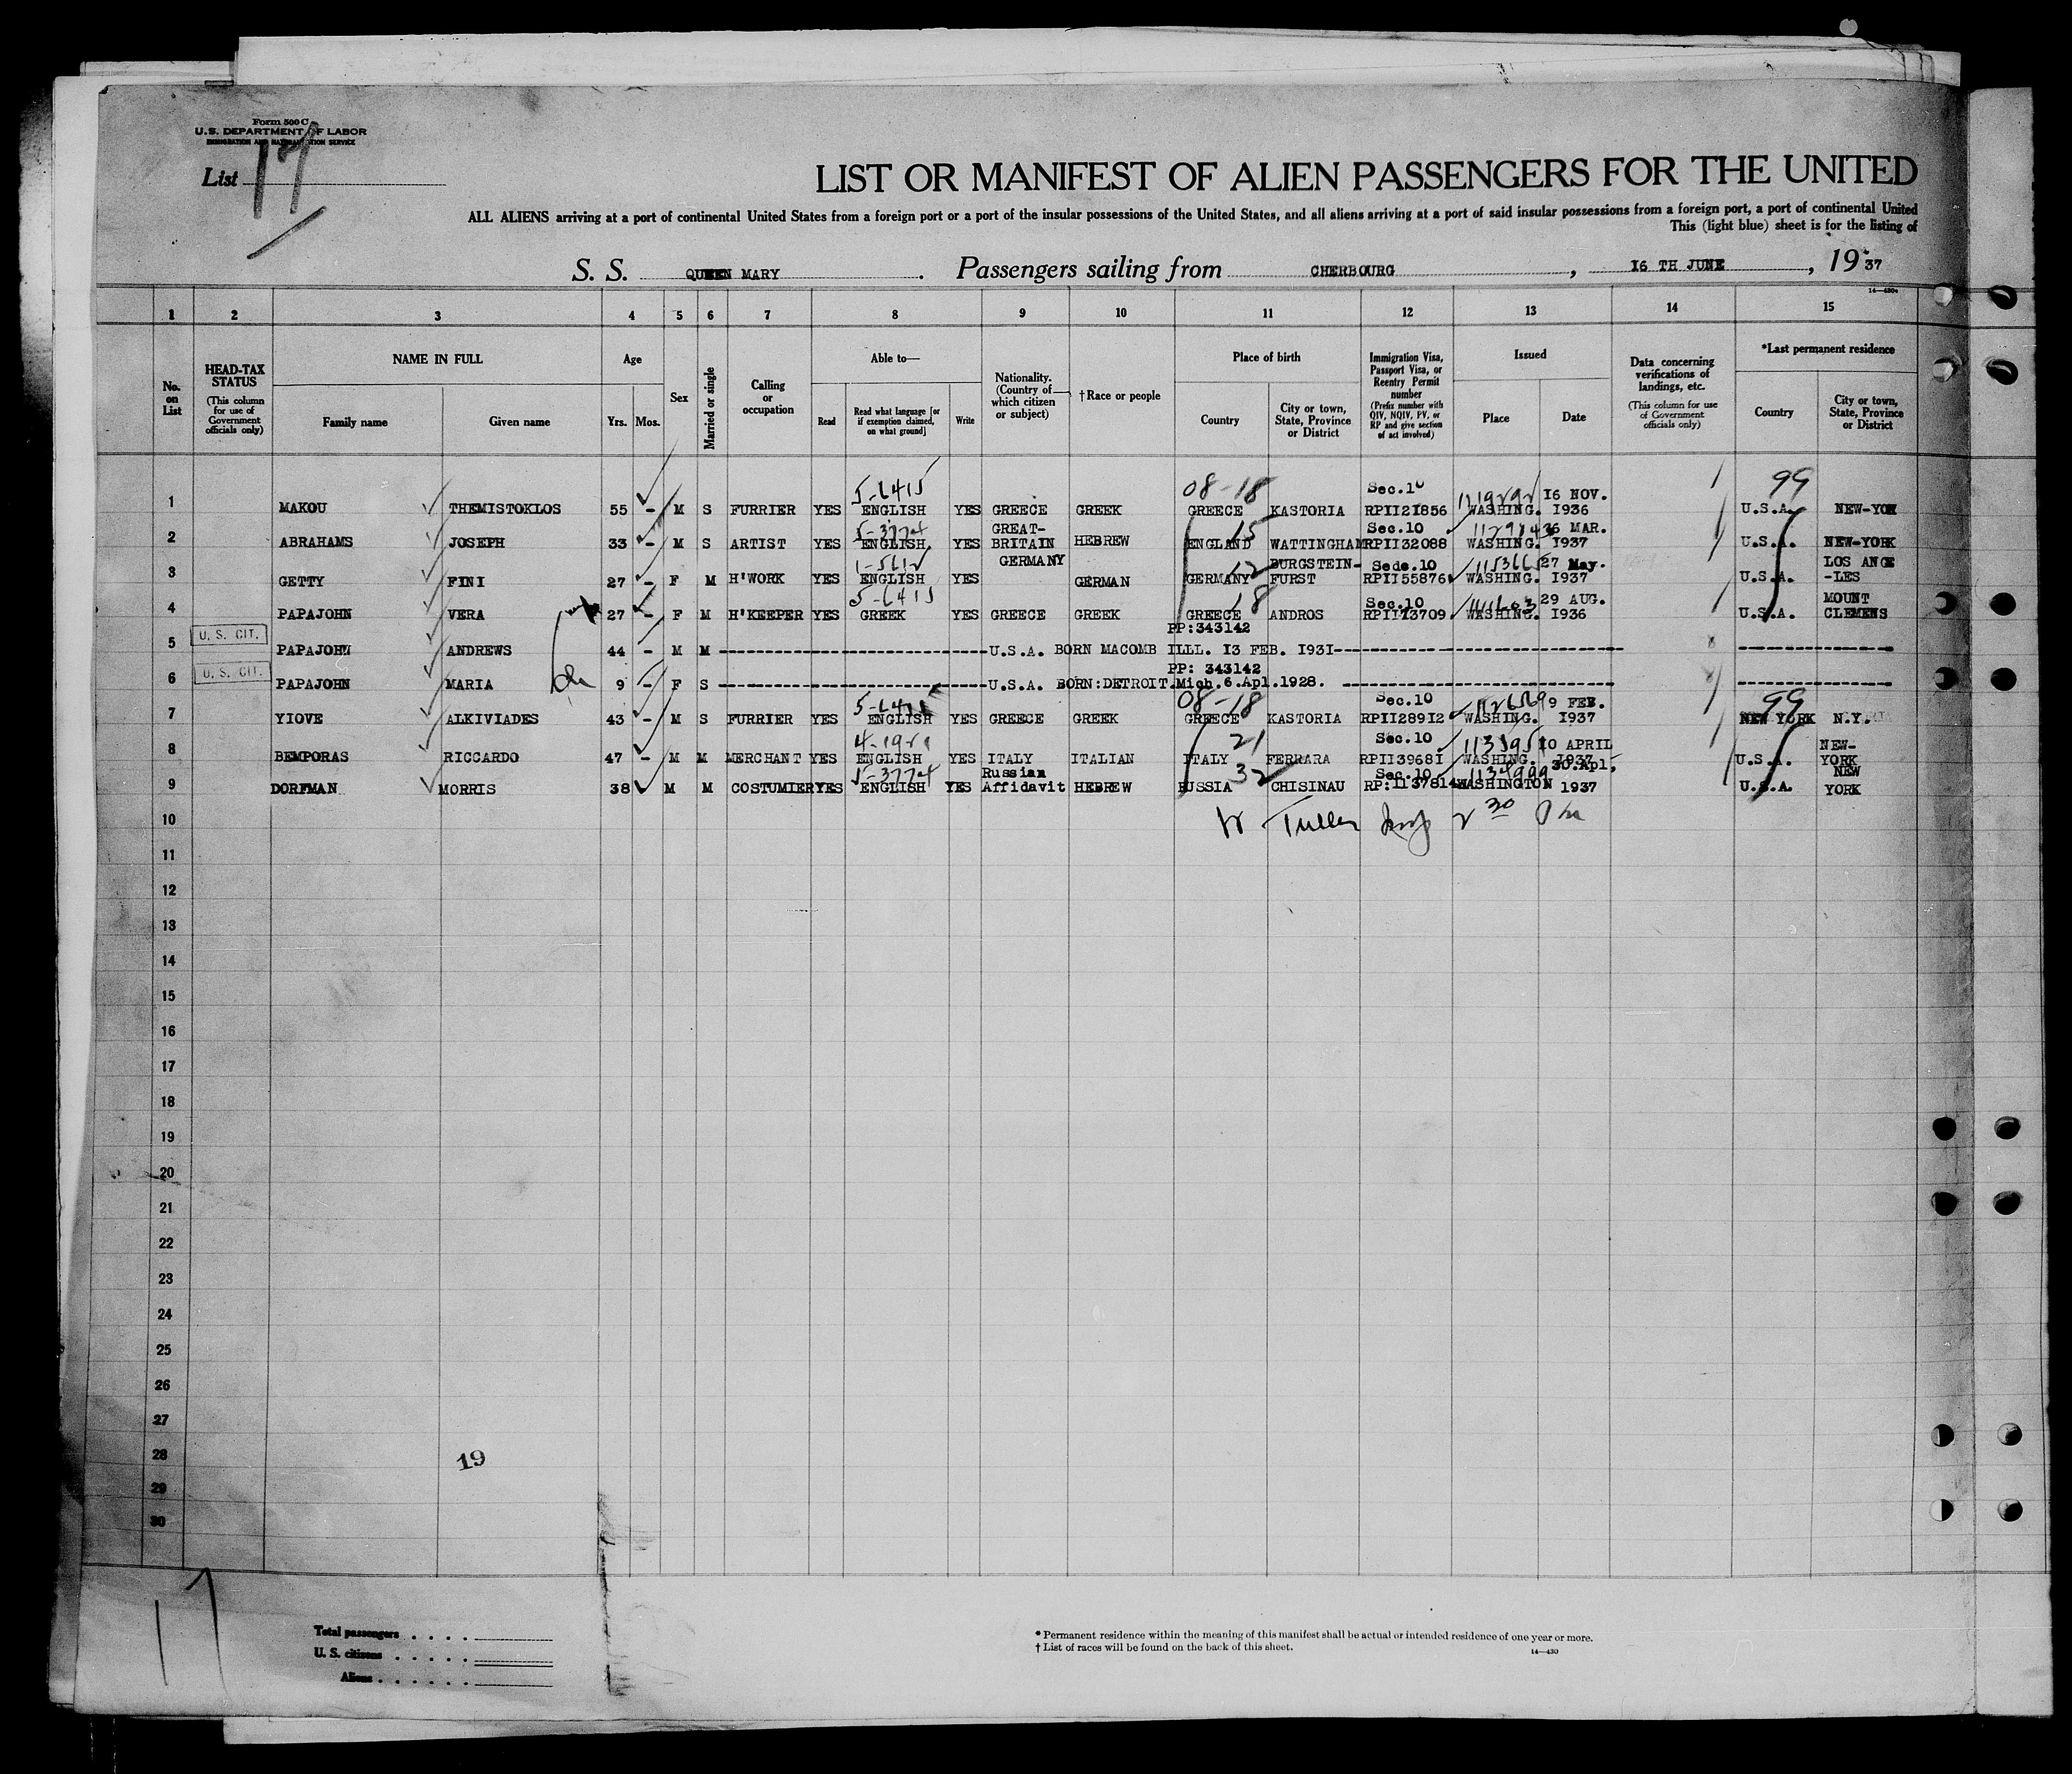 Form 500 C
U.S. DEPARTMENT OF LABOR
IMMIGRATION AND NATURALIZATION SERVICE
List 17
LIST OR MANIFEST OF ALIEN PASSENGERS FOR THE UNITED
ALL ALIENS arriving at a port of continental United States from a foreign port or a port of the insular possessions of the United States, and all aliens arriving at a port of said insular possessions from a foreign port, a port of continental United
This (light blue) sheet is for the listing of
S. S. QUEEN MARY. Passengers sailing from CHERBOURG, I6 TH JUNE, 19 37
14—430
1 2 3 4 5 6 7 8 9 10 11 12 13 14 15
No. on List
HEAD-TAX STATUS (This column for use of Government officials only)
NAME IN FULL Family name Given name
Age Yrs. Mos.
Sex
Married or single
Calling or occupation
Able to— Read Read what language [or if exemption claimed, on what ground] Write
Nationality. (Country of which citizen or subject)
†Race or people
Place of birth Country City or town, State, Province or District
Immigration Visa, Passport Visa, or Reentry Permit number (Prefix number with QIV, NQIV, PV, or RP and give section of act involved)
Issued Place Date
Data concerning verifications of landings, etc. (This column for use of Government officials only)
*Last permanent residence Country City or town, State, Province or District
5-6415 08-18 Sec.10 16 NOV. 99
1 MAKOU THEMISTOKLOS 55 - M S FURRIER YES ENGLISH YES GREECE GREEK GREECE KASTORIA RPII2I856 WASHING. I936 U.S.A. NEW-YOK
5-3774 GREAT- 15 Sec.10 26 MAR.
2 ABRAHAMS JOSEPH 33 - M S ARTIST YES ENGLISH YES BRITAIN HEBREW ENGLAND WATTINGHAM RPII32088 WASHING. I937 U.S.A. NEW-YORK
1-5612 GERMANY 12 BURGSTEIN- Sede.10 27 May. LOS ANGE
3 GETTY FINI 27 - F M H'WORK YES ENGLISH YES GERMAN GERMANY FURST RPII55876 WASHING. I937 U.S.A. -LES
5-6415 18 Sec.10 29 AUG. MOUNT
4 PAPAJOHN VERA 27 - F M H'KEEPER YES GREEK YES GREECE GREEK GREECE ANDROS RPIII3709 WASHING. I936 U.S.A. CLEMENS
U. S. CIT. PP:343142
5 PAPAJOHN ANDREWS 44 - M M U.S.A. BORN MACOMB ILLL. I3 FEB. I93I
U. S. CIT. PP: 343142
6 PAPAJOHN MARIA 9 - F S U.S.A. BORN:DETROIT.Mich.6.Apl.1928.
08-18 Sec.10 9 FEB. 99
7 YIOVE ALKIVIADES 43 - M S FURRIER YES ENGLISH YES GREECE GREEK GREECE KASTORIA RPII289I2 WASHING. I937 NEW YORK N.Y.
21 Sec.10 10 APRIL NEW-
8 BEMPORAS RICCARDO 47 - M M MERCHANT YES ENGLISH YES ITALY ITALIAN ITALY FERRARA RPII3968I WASHING. I937 U.S.A. YORK
5-3774 Russian 32 Sec.10 30.Apl. NEW
9 DORFMAN MORRIS 38 M M COSTUMIER YES ENGLISH YES Affidavit HEBREW RUSSIA CHISINAU RP:1137814 WASHINGTON 1937 U.S.A. YORK
10
11
12
13
14
15
16
17
18
19
20
21
22
23
24
25
26
27
28
19
29
30
Total passengers
U. S. citizens
Aliens
* Permanent residence within the meaning of this manifest shall be actual or intended residence of one year or more.
† List of races will be found on the back of this sheet.
14—430